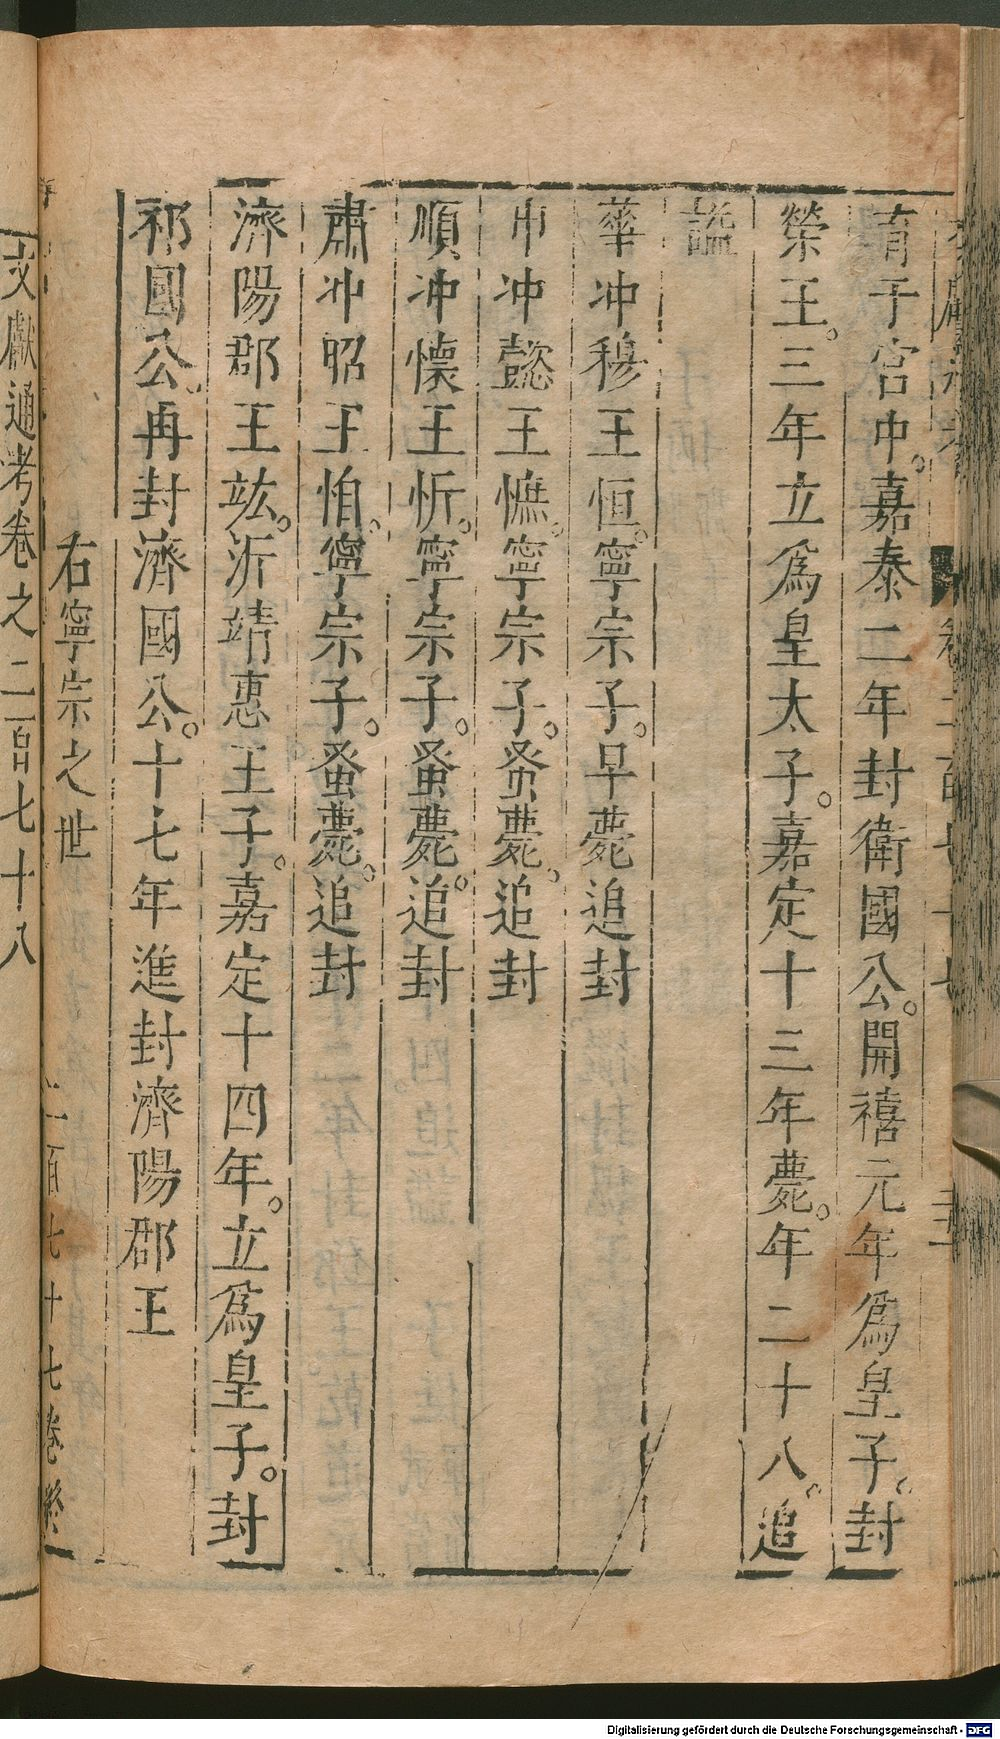 育于宮中。嘉泰二年封衛國公。開禧元年爲皇子。封
榮王。三年立爲皇太子。嘉定十三年薨。年二十八。追
謚
華冲穆王恒。寧宗子。早薨追封
申冲懿王憔。寧宗子。蚤薨。追封
順冲懷王忻。寧宗子。蚤薨。追封
肅冲昭王怕。寧宗子。蚤薨。追封
濟陽郡王竑。沂靖惠王子。嘉定十四年。立爲皇子。封
祁國公。再封濟國公。十七年進封濟陽郡王
右寧宗之世
二百七十七卷終
文獻通考卷之二百七十八
Digitalisierung gefördert durch die Deutsche Forschungsgemeinschaft - DFG